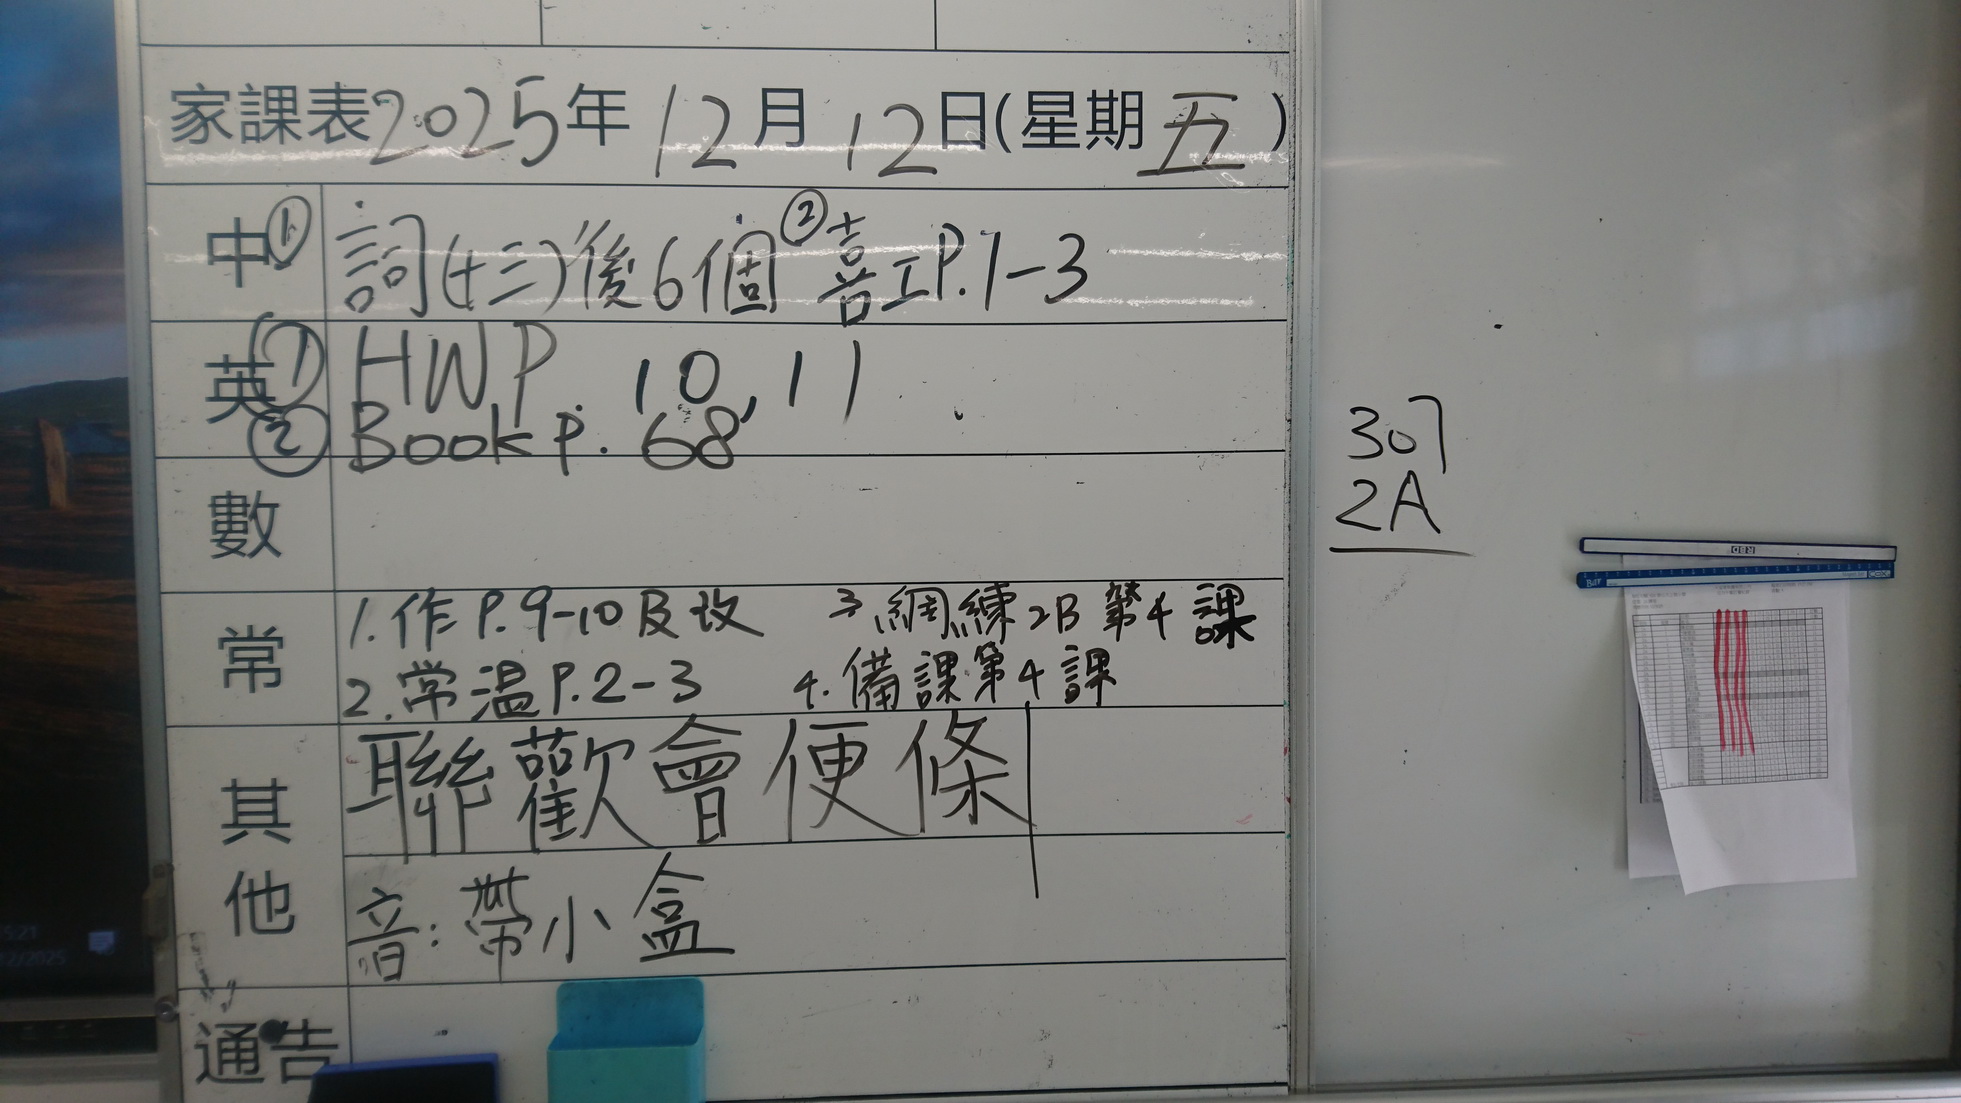 家課表2025年12月12日(星期五)
中 ① 詞(十三)後6個 ②喜工P.1-3
英 ① HWP. 10, 11
② Book p. 68
數
常 1.作P.9-10及改 3.網練2B第4課
2.常溫P.2-3 4.備課第4課
其他 聯歡會便條
音:帶小盒
通告
307
2A